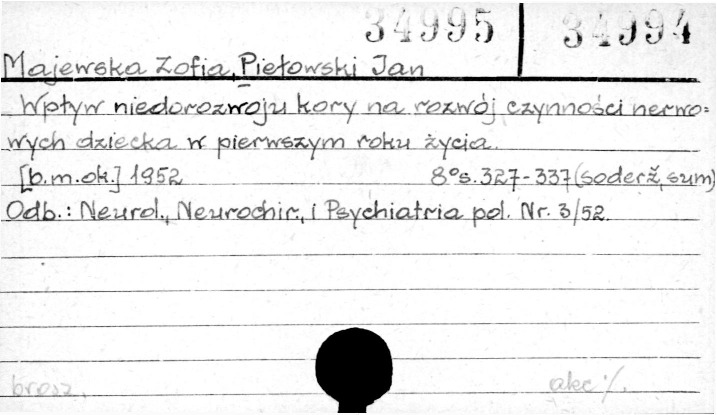 34995 34994
Majewska Zofia, Piełowski Jan
Wpływ niedorozwoju kory na rozwój czynności nerwo=
wych dziecka w pierwszym roku życia.
[b.m.ok.] 1952 8°s. 327-337 (soderž, sum)
Odb.: Neurol., Neurochir., i Psychiatria pol. Nr. 3/52.
brosz. akc %.